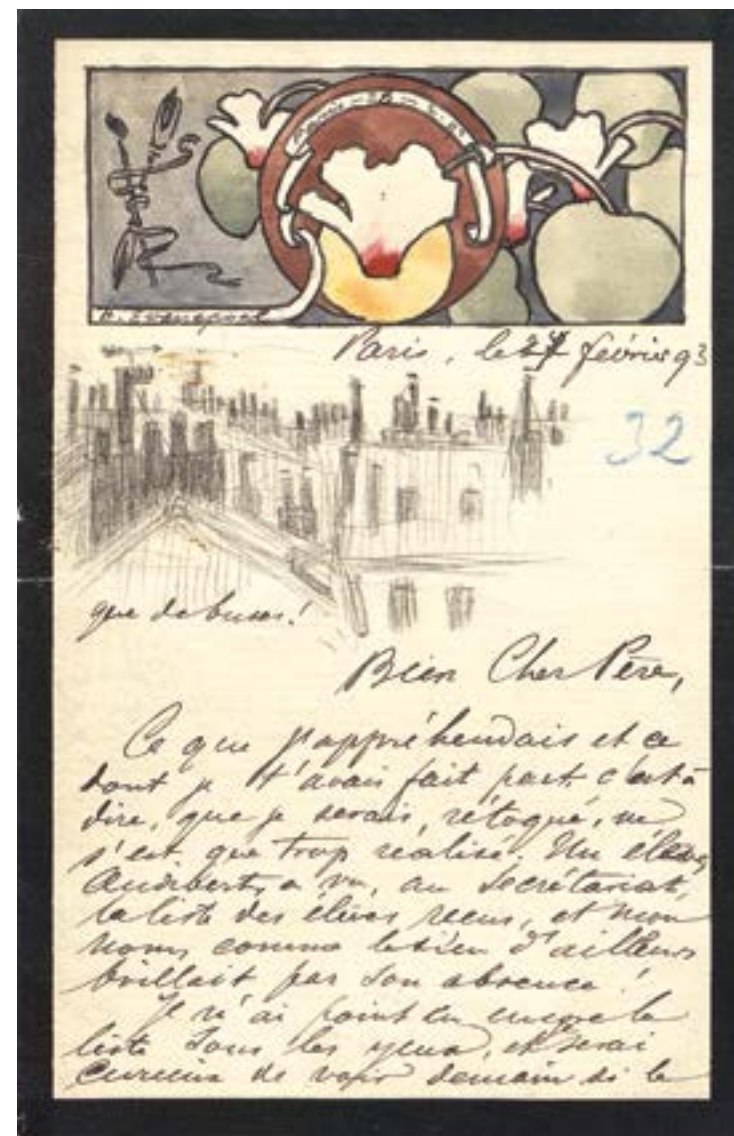 Paris, le 27 février 93
32
que de buses!
Bien Cher Père,
Ce que j'appréhendais et ce
dont je t'avais fait part, c'est à
dire, que je serais, rétoqué, ne
s'est que trop réalisé. Un élève,
Audibert, a vu, au Secrétariat,
la liste des élèves reçus, et mon
nom, comme le sien d'ailleurs
brillait par son absence!
Je n'ai point eu encore la
liste sous les yeux, et serai
curieux de voir demain si le